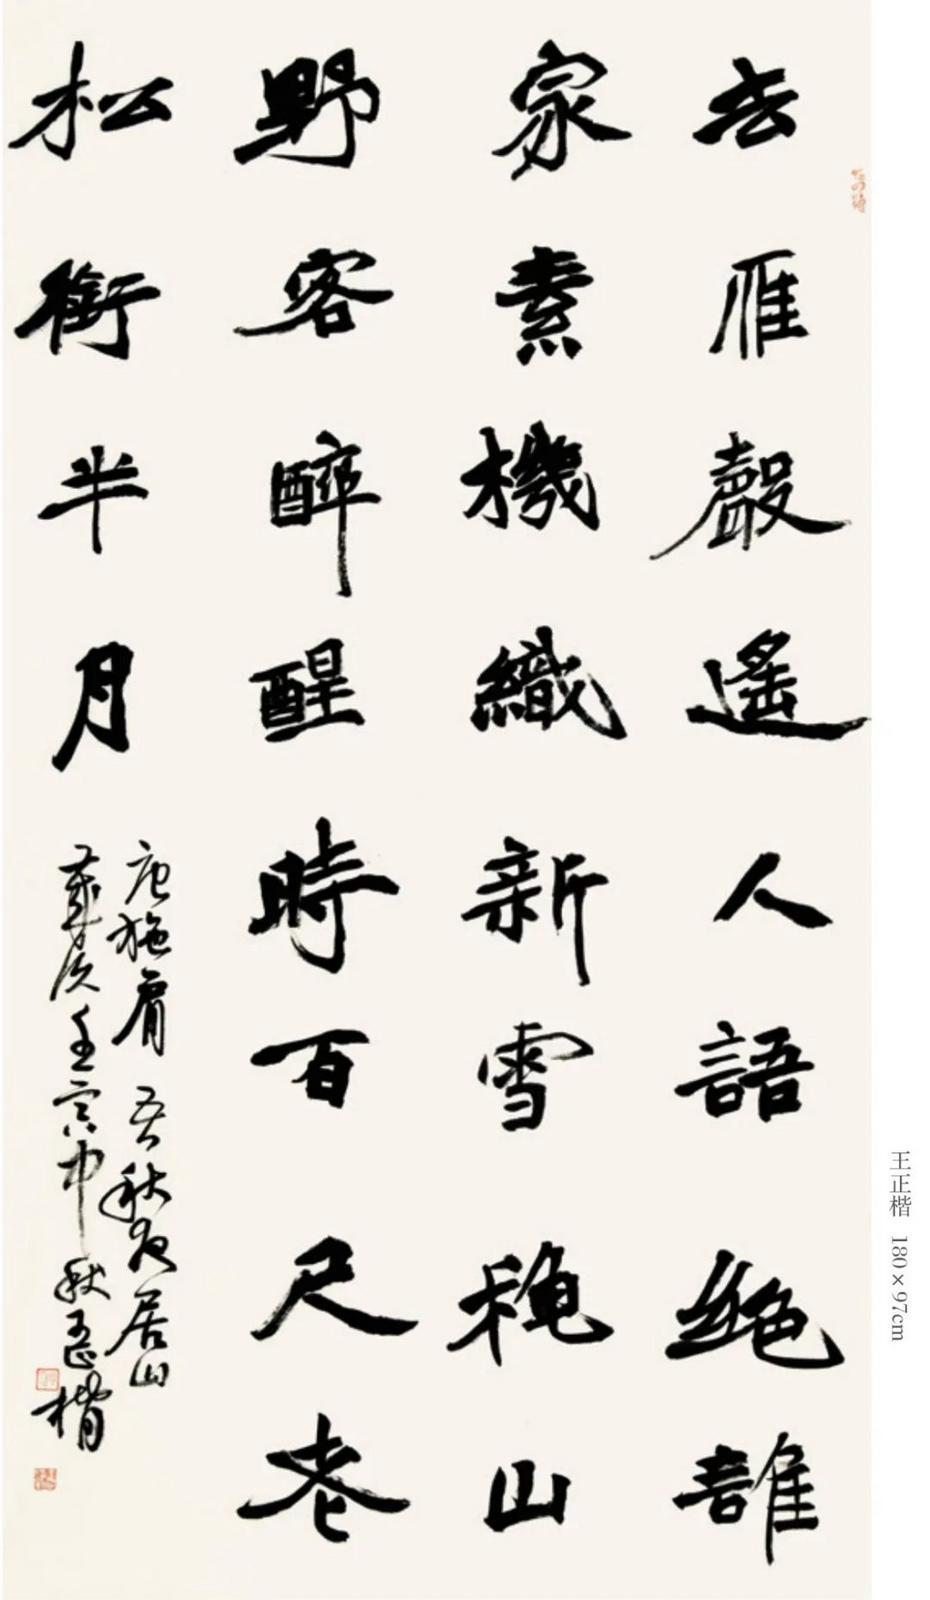 去雁聲遥人語絶誰
家素機織新雪秋山
野客醉醒時百尺老
松銜半月
唐施肩吾秋夜居山
歲次壬寅中秋正楷
王正楷 180×97cm